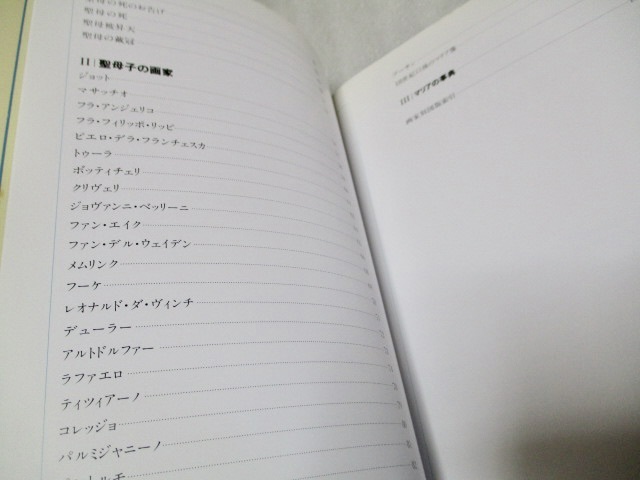 聖母の死のお告げ
聖母の死
聖母被昇天
聖母の戴冠
II|聖母子の画家
ジョット
マサッチオ
フラ・アンジェリコ
フラ・フィリッポ・リッピ
ピエロ・デラ・フランチェスカ
トゥーラ
ボッティチェリ
クリヴェリ
ジョヴァンニ・ベッリーニ
ファン・エイク
ファン・デル・ウェイデン
メムリンク
フーケ
レオナルド・ダ・ヴィンチ
デューラー
アルトドルファー
ラファエロ
ティツィアーノ
コレッジョ
パルミジャニーノ
III|マリアの事典
画家別図版索引